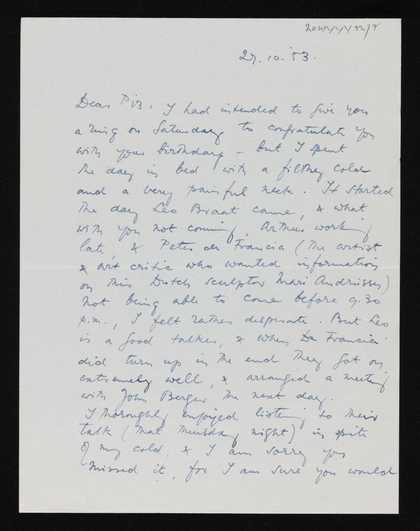 27.10.'53.
Dear Pis. I had intended to give you
a ring on Saturday to congratulate you
with your birthday – but I spent
the day in bed, with a filthy cold
and a very painful neck. It started
the day Leo Braat came, & what
with you not coming, Arthur working
late, & Peter de Francia (the artist
& art critic who wanted information
on this Dutch sculptor Mari Andriessen)
not being able to come before 9.30
p.m., I felt rather desperate. But Leo
is a good talker, & when De Francia
did turn up in the end they got on
extremely well, & arranged a meeting
with John Berger the next day.
I thoroughly enjoyed listening to their
talk (that Thursday night) in spite
of my cold, & I am sorry you
missed it, for I am sure you would